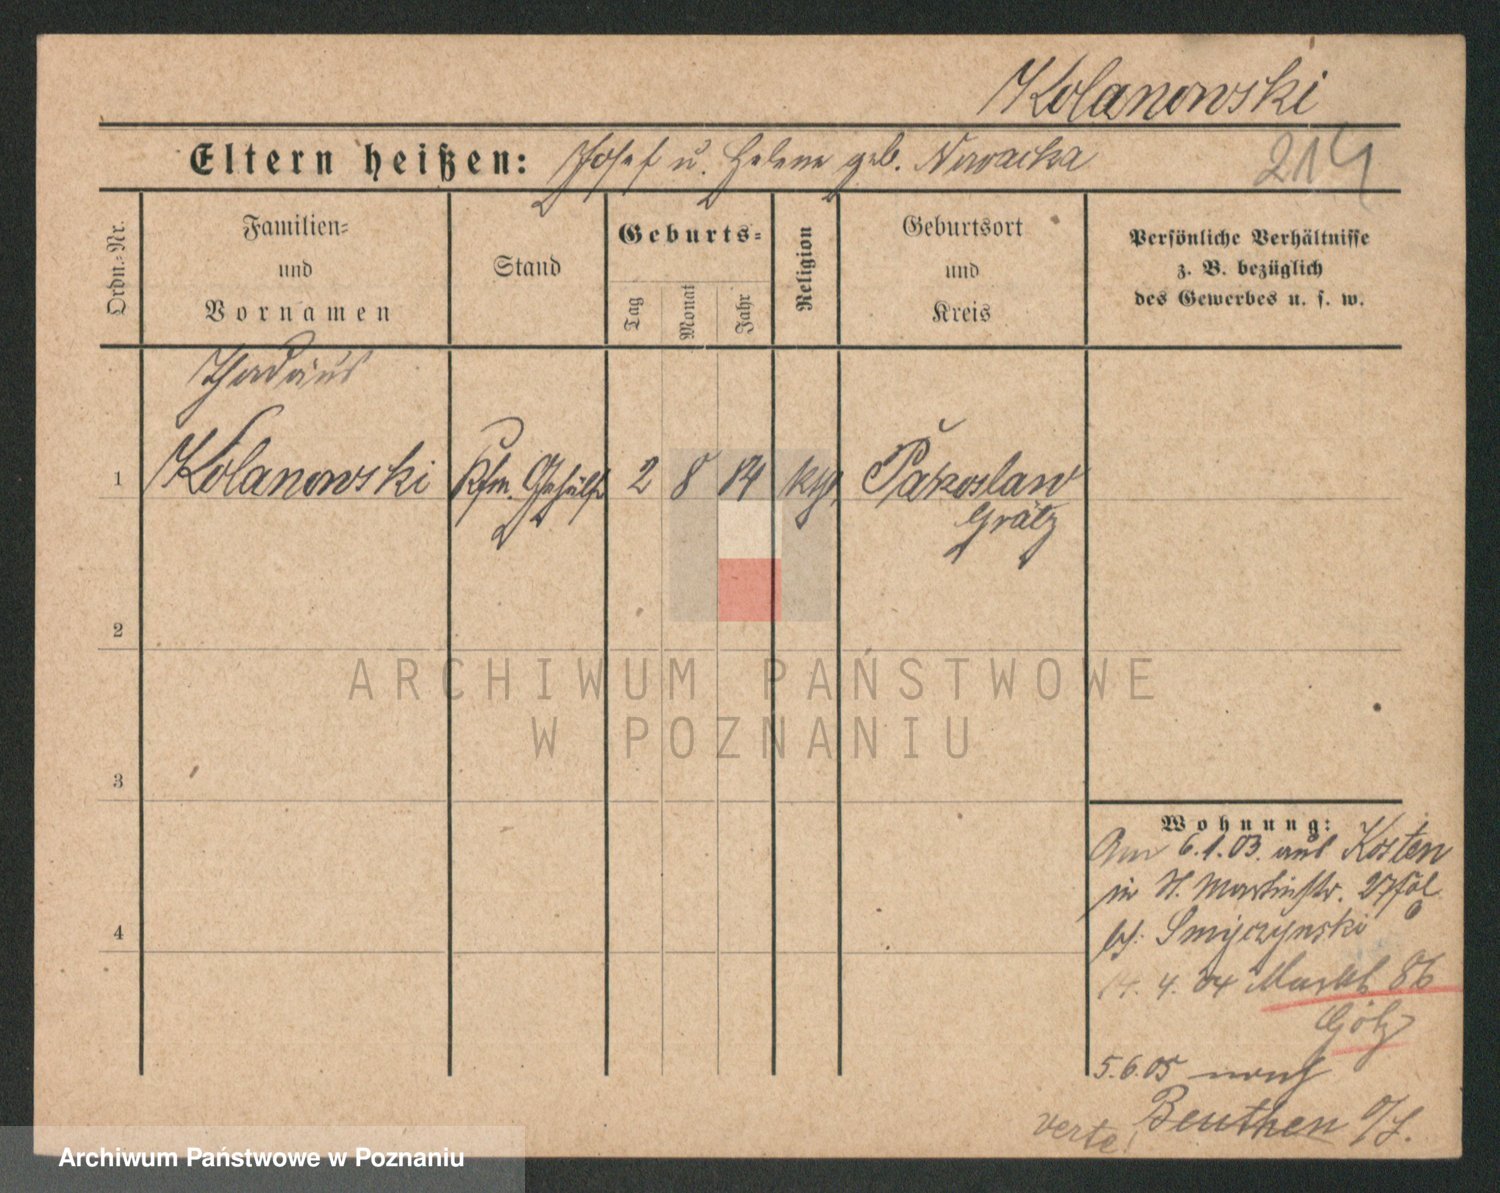 Kolanowski
Eltern heißen: Josef u. Helene geb. Nowacka
214
Ordn.-Nr.
Familien-
und
Vornamen
Stand
Geburts-
Tag
Monat
Jahr
Religion
Geburtsort
und
Kreis
Persönliche Verhältnisse
z. B. bezüglich
des Gewerbes u. s. w.
Thadäus
1 Kolanowski Kfm. Gehülfe 2 8 84 kth Pakoslaw
Grätz
2
3
4
ARCHIWUM PAŃSTWOWE
W POZNANIU
Wohnung:
Am 6.1.03. aus Kosten
in St. Martinstr. 27
bei Smyczynski
14. 4. 04 Markt 86
5.6.05 nach
Beuthen O/S.
verte!
Archiwum Państwowe w Poznaniu